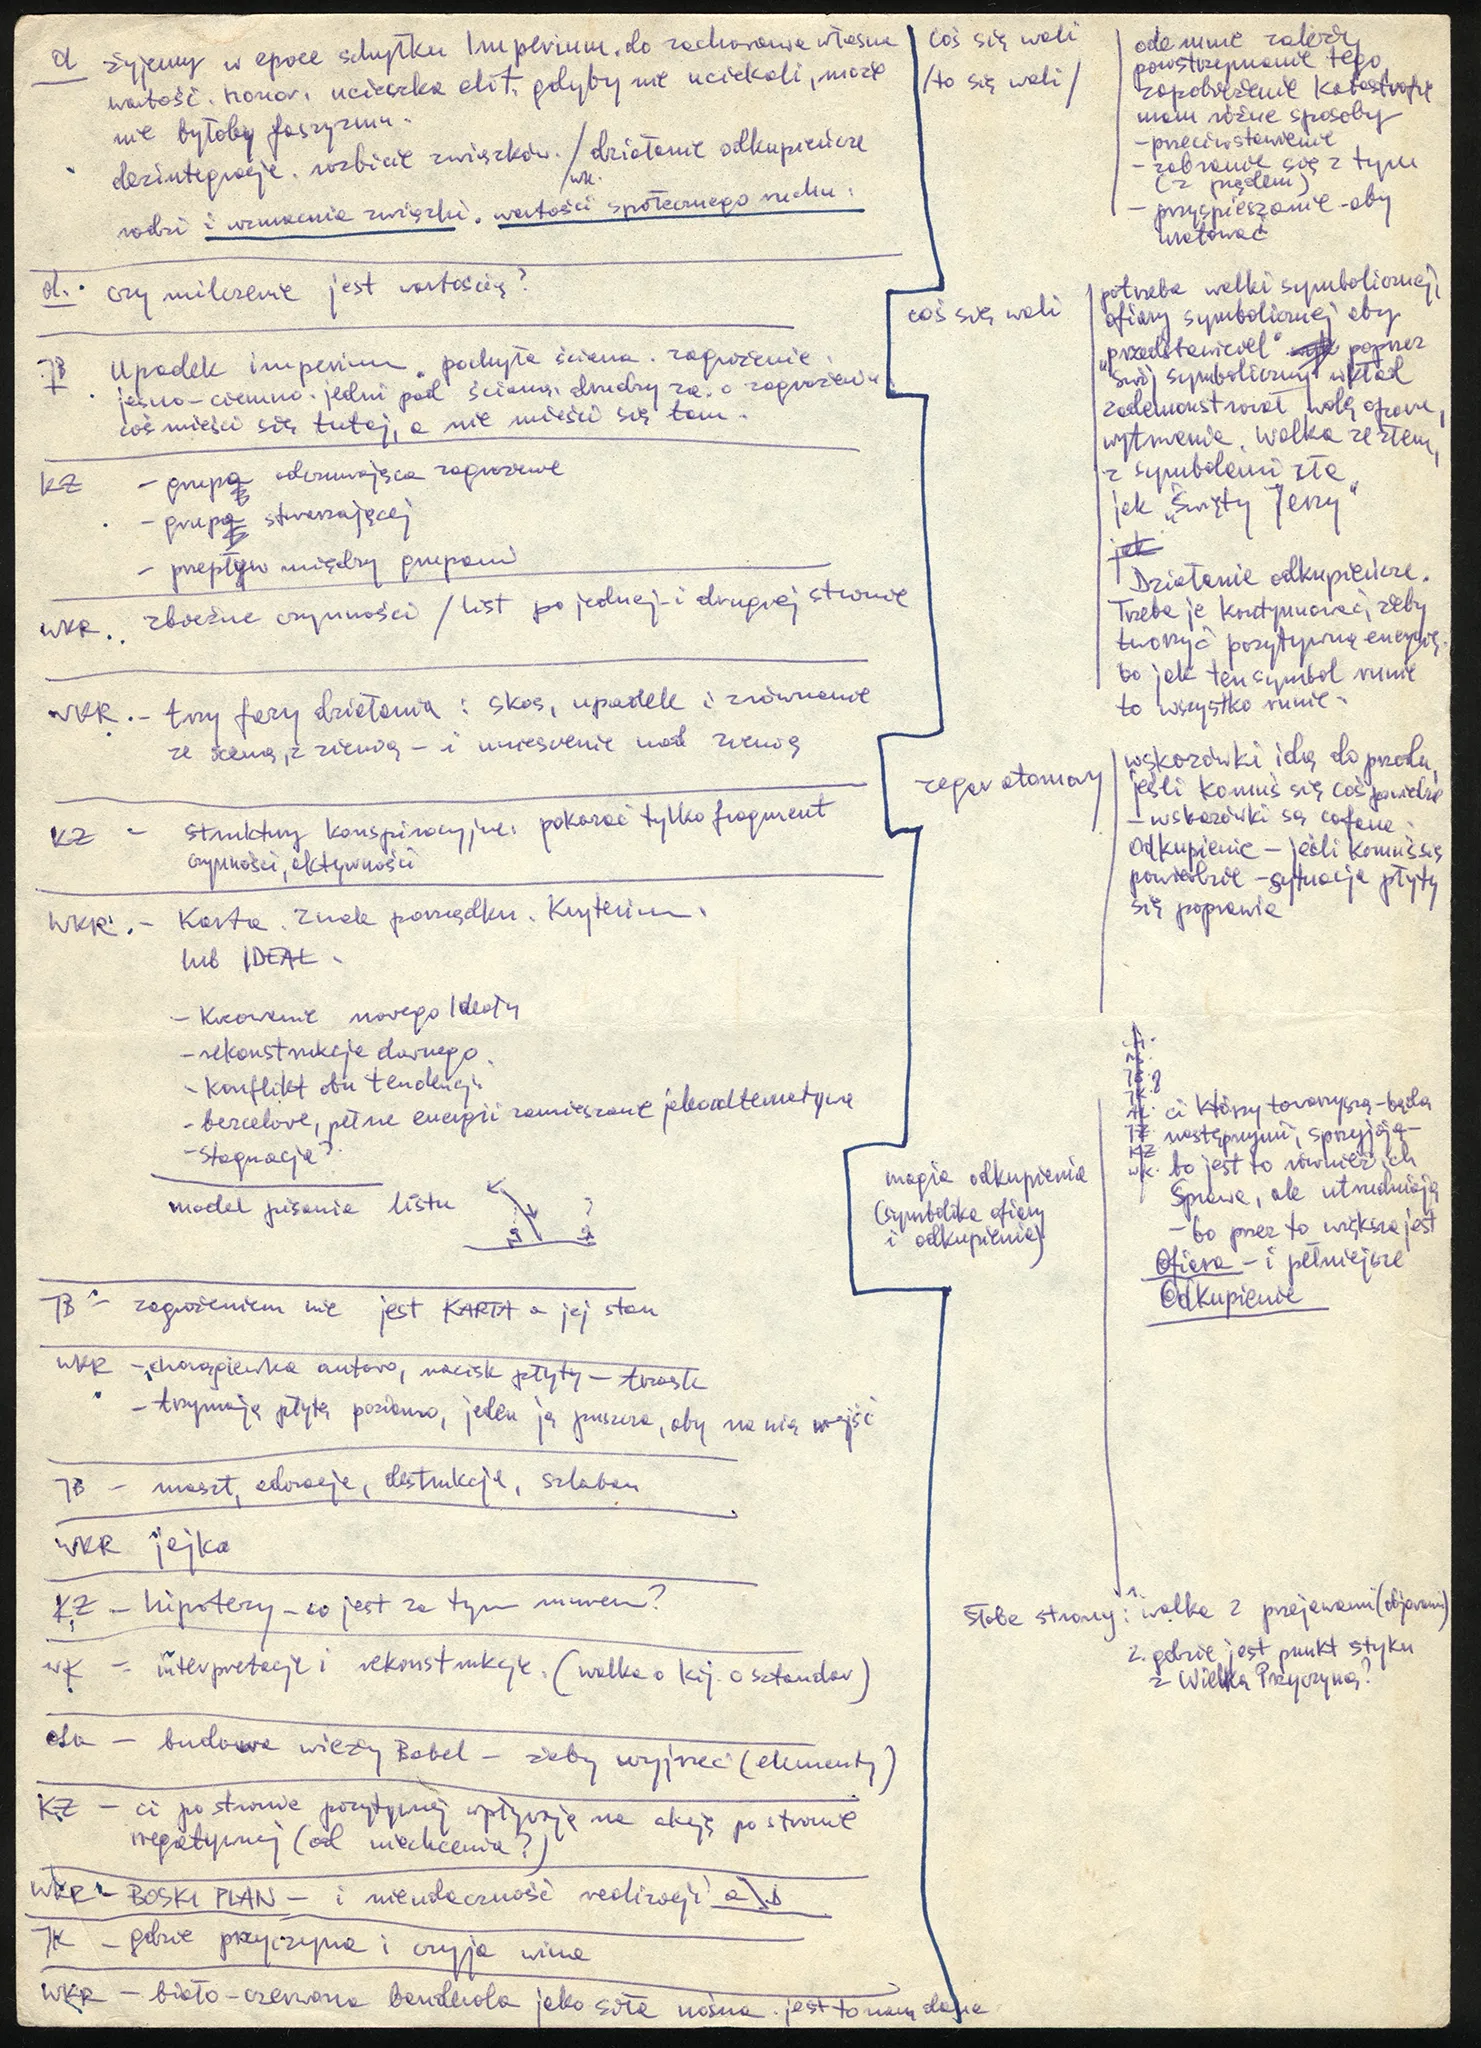 d żyjemy w epoce schyłku Imperium. do zachowania własna
wartość. Honor. ucieczka elit. gdyby nie uciekali, może
nie byłoby faszyzmu.
dezintegracja. rozbicie związków. / działanie odkupieńcze
wk.
rodzi i wzmacnia związki. wartości społecznego ruchu.
d. czy milczenie jest wartością?
JB Upadek imperium. pochyła ściana. zagrożenie.
jasno-ciemno. jedni pod ścianą, drudzy za. o zagrożeniu
coś mieści się tutaj, a nie mieści się tam.
KZ - grupa odczuwająca zagrożenie
- grupa stwarzającej
- przepływ między grupami
WKR. zbieżne czynności / list po jednej i drugiej stronie
WKR. - trzy fazy działania: skos, upadek i zrównanie
ze sceną, z ziemią - i uniesienie nad ziemią
KZ - struktury konspiracyjne. pokazać tylko fragment
czynności, aktywności
WKR. - Karta. Znak porządku. Kryterium.
lub IDEAŁ.
- Kreowanie nowego Ideału
- rekonstrukcja dawnego
- Konflikt obu tendencji
- bezcelowe, pełne energii zamieszanie jako alternatywa
- Stagnacja?
model pisania listu
?
JB - zagrożeniem nie jest KARTA a jej stan
WKR - chorągiewka autora, nacisk płyty - trzask
- trzymają płytę poziomo, jeden ją puszcza, aby na nią wejść
JB - maszt, adoracja, destrukcja, szlaban
WKR jajka
KZ - hipotezy - co jest za tym murem?
WK - interpretacje i rekonstrukcje. (walka o kij. o sztandar)
ola - budowa wieży Babel - żeby wyjrzeć (elementy)
KZ - ci po stronie pozytywnej wpływają na akcję po stronie
negatywnej (od niechcenia?)
WKR - BOSKI PLAN - i nieudaczność realizacji
JK - gdzie przyczyna i czyja wina
WKR - biało-czerwona banderola jako siła nośna. jest to nam dane
coś się wali
/to się wali/
ode mnie zależy
powstrzymanie tego,
zapobieżenie Katastrofie
mam różne sposoby
- przeciwstawienie
- zabranie się z tym
(z prądem)
- przyspieszanie - aby
uratować
coś się wali
potrzeba walki symbolicznej,
ofiary symbolicznej aby
"przedstawiciel" poprzez
swój symboliczny wkład
zademonstrował wolę oporu,
wytrwania. Walka ze złem,
z symbolami zła
jak "Święty Jerzy"
jak
Działanie odkupieńcze.
Trzeba je kontynuować, żeby
tworzyć pozytywną energię.
bo jak ten symbol runie
to wszystko runie.
zegar atomowy
wskazówki idą do przodu,
jeśli komuś się coś powiedzie
- wskazówki są cofane.
Odkupienie - jeśli komuś się
powiedzie - sytuacja płyty
się poprawia
magia odkupienia
(symbolika ofiary
i odkupienia)
KZ
WK.
ci którzy towarzyszą - będą
następnymi, sprzyjają -
bo jest to również ich
Sprawa, ale utrudniają
- bo przez to większa jest
Ofiara - i pełniejsze
Odkupienie
Słabe strony: 1. walka z przejawami (objawami)
2. gdzie jest punkt styku
z Wielką Przyczyną?